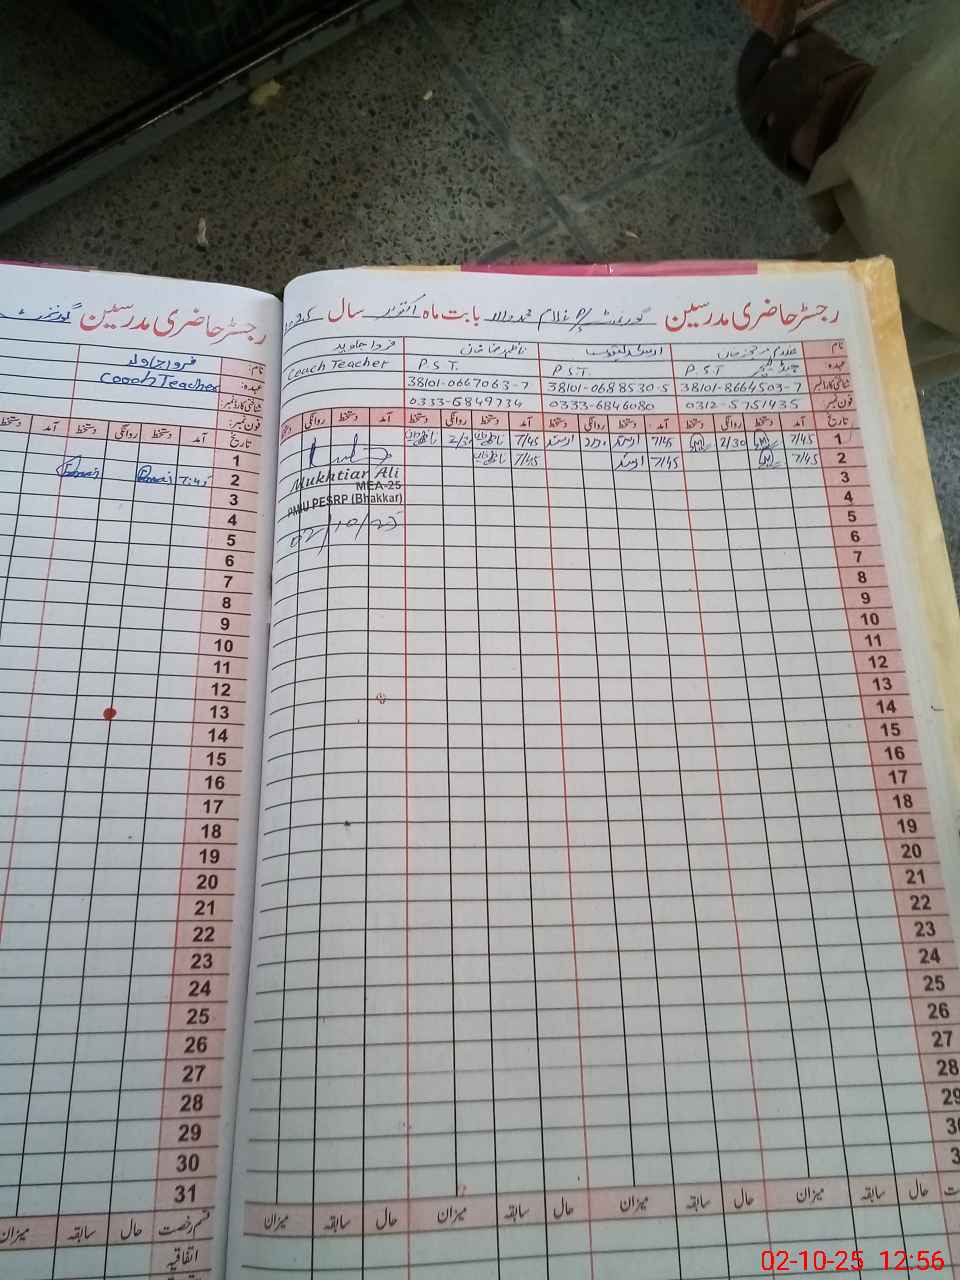 رجسٹر حاضری مدرسین گورنمنٹ P/ غلام محمد والا بابت ماہ اکتوبر سال 2025
نام
عہدہ P.S.T P.S.T. P.S.T. Coach Teacher
شناختی کارڈ نمبر 38101-8664503-7 38101-0688530-5 38101-0667063-7
فون نمبر 0312-5751435 0333-6846080 0333-6849734
تاریخ آمد دستخط روانگی دستخط آمد دستخط روانگی دستخط آمد دستخط روانگی دستخط آمد دستخط روانگی
1 7/45 2/30 7/45 2/30 7/45
2 7/45 7/45 7/45
Mukhtiar Ali
MEA-25
PMIU PESRP (Bhakkar)
02/10/25
3
4
5
6
7
8
9
10
11
12
13
14
15
16
17
18
19
20
21
22
23
24
25
26
27
28
29
حال سابقہ میزان حال سابقہ میزان حال سابقہ میزان حال سابقہ میزان
رجسٹر حاضری مدرسین گورنمنٹ
نام:
عہدہ: Coach Teacher
شناختی کارڈ نمبر:
فون نمبر:
تاریخ آمد دستخط روانگی دستخط آمد دستخط
1
2 7:45
3
4
5
6
7
8
9
10
11
12
13
14
15
16
17
18
19
20
21
22
23
24
25
26
27
28
29
30
31
قسم رخصت حال سابقہ میزان
اتفاقیہ
02-10-25 12:56